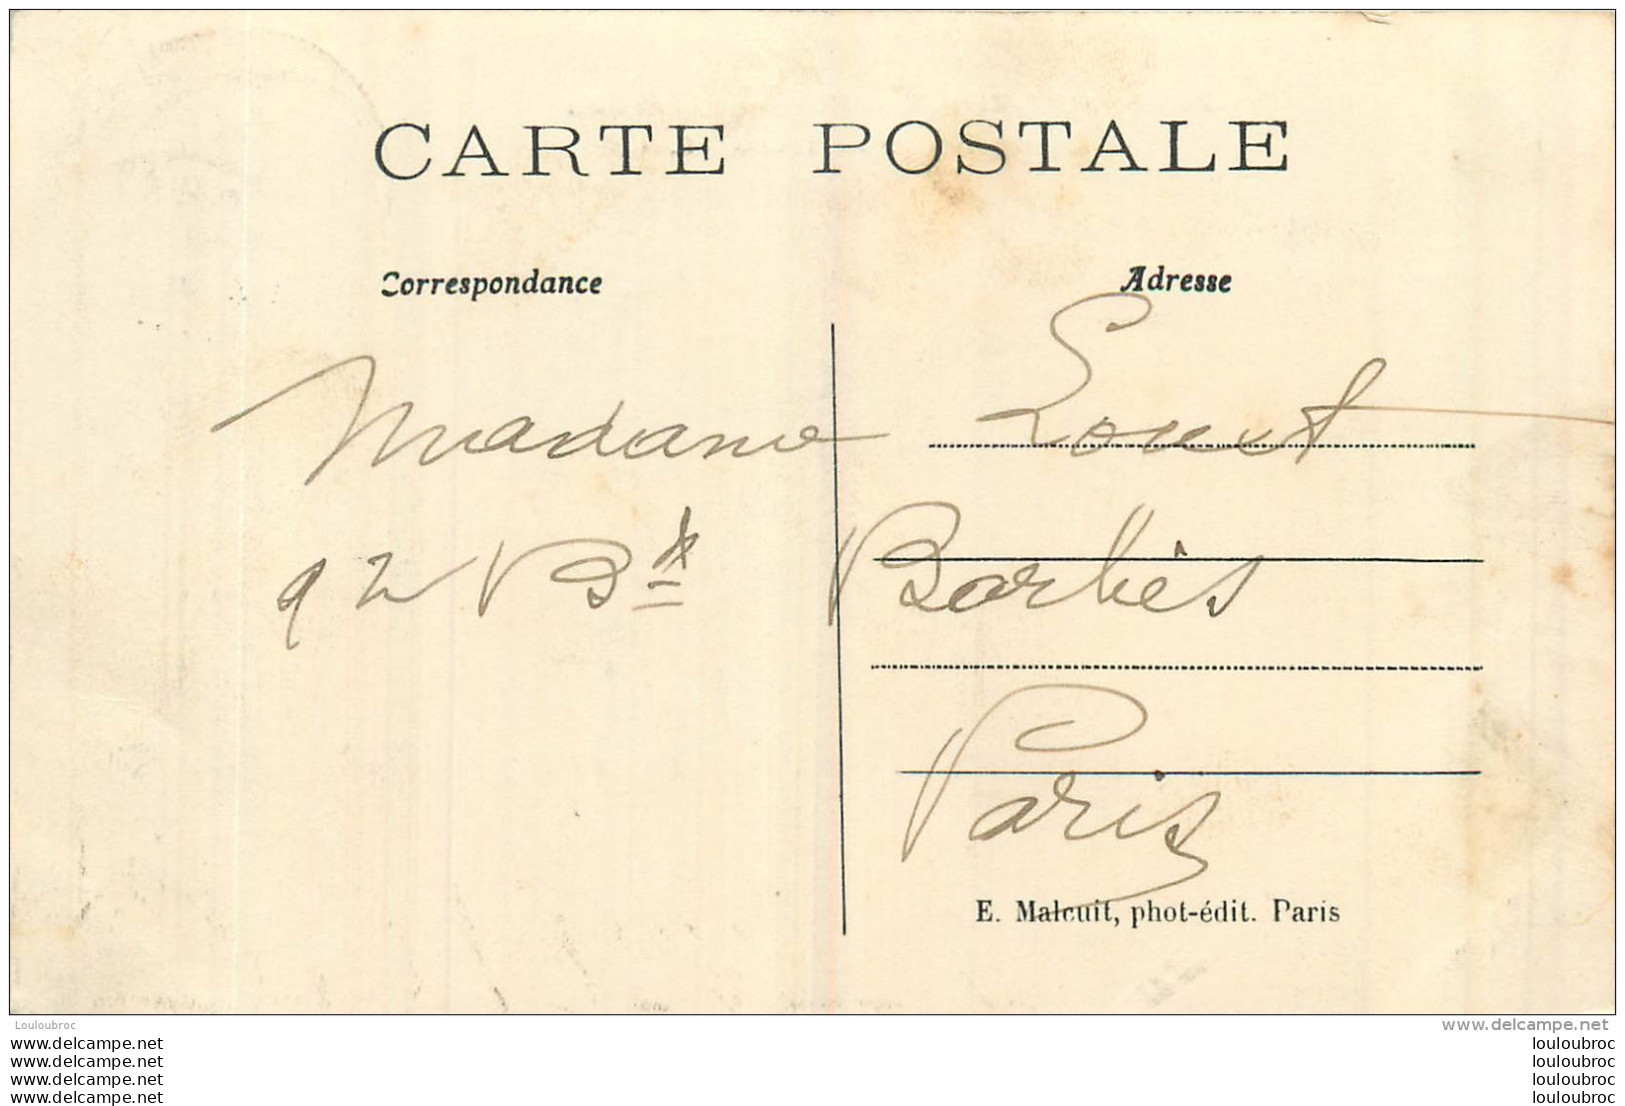 CARTE POSTALE
Correspondance Adresse
Madame Louet
92 Bd Barbès
Paris
E. Malcuit, phot-édit. Paris
Louloubroc
www.delcampe.net
www.delcampe.net
www.delcampe.net
www.delcampe.net
www.delcampe.net
louloubroc
louloubroc
louloubroc
louloubroc